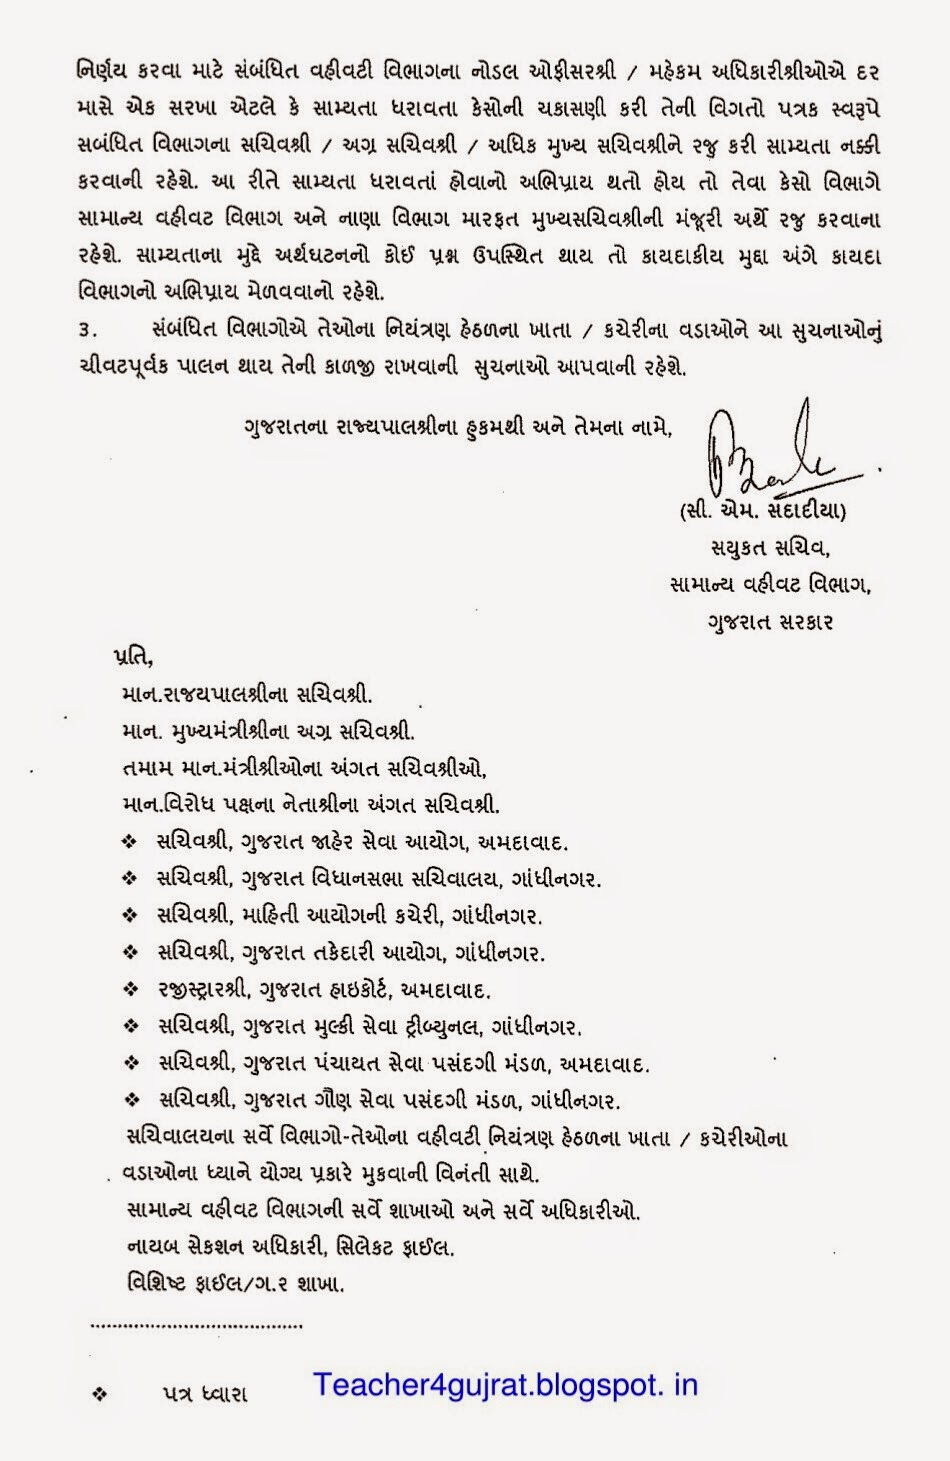 નિર્ણય કરવા માટે સંબંધિત વહીવટી વિભાગના નોડલ ઓફીસરશ્રી / મહેકમ અધિકારીશ્રીઓએ દર
માસે એક સરખા એટલે કે સામ્યતા ધરાવતા કેસોની ચકાસણી કરી તેની વિગતો પત્રક સ્વરૂપે
સબંધિત વિભાગના સચિવશ્રી / અગ્ર સચિવશ્રી / અધિક મુખ્ય સચિવશ્રીને રજુ કરી સામ્યતા નક્કી
કરવાની રહેશે. આ રીતે સામ્યતા ધરાવતાં હોવાનો અભિપ્રાય થતો હોય તો તેવા કેસો વિભાગે
સામાન્ય વહીવટ વિભાગ અને નાણા વિભાગ મારફત મુખ્યસચિવશ્રીની મંજૂરી અર્થે રજુ કરવાના
રહેશે. સામ્યતાના મુદ્દે અર્થઘટનનો કોઈ પ્રશ્ન ઉપસ્થિત થાય તો કાયદાકીય મુદ્દા અંગે કાયદા
વિભાગનો અભિપ્રાય મેળવવાનો રહેશે.
૩. સંબંધિત વિભાગોએ તેઓના નિયંત્રણ હેઠળના ખાતા / કચેરીના વડાઓને આ સુચનાઓનું
ચીવટપૂર્વક પાલન થાય તેની કાળજી રાખવાની સુચનાઓ આપવાની રહેશે.
ગુજરાતના રાજ્યપાલશ્રીના હુકમથી અને તેમના નામે,
(સી. એમ. સદાદીયા)
સયુકત સચિવ,
સામાન્ય વહીવટ વિભાગ,
ગુજરાત સરકાર
પ્રતિ,
માન.રાજયપાલશ્રીના સચિવશ્રી.
માન. મુખ્યમંત્રીશ્રીના અગ્ર સચિવશ્રી.
તમામ માન.મંત્રીશ્રીઓના અંગત સચિવશ્રીઓ,
માન.વિરોધ પક્ષના નેતાશ્રીના અંગત સચિવશ્રી.
❖ સચિવશ્રી, ગુજરાત જાહેર સેવા આયોગ, અમદાવાદ.
❖ સચિવશ્રી, ગુજરાત વિધાનસભા સચિવાલય, ગાંધીનગર.
❖ સચિવશ્રી, માહિતી આયોગની કચેરી, ગાંધીનગર.
❖ સચિવશ્રી, ગુજરાત તકેદારી આયોગ, ગાંધીનગર.
❖ રજીસ્ટ્રારશ્રી, ગુજરાત હાઇકોર્ટ, અમદાવાદ.
❖ સચિવશ્રી, ગુજરાત મુલ્કી સેવા ટ્રીબ્યુનલ, ગાંધીનગર.
❖ સચિવશ્રી, ગુજરાત પંચાયત સેવા પસંદગી મંડળ, અમદાવાદ.
❖ સચિવશ્રી, ગુજરાત ગૌણ સેવા પસંદગી મંડળ, ગાંધીનગર.
સચિવાલયના સર્વે વિભાગો-તેઓના વહીવટી નિયંત્રણ હેઠળના ખાતા / કચેરીઓના
વડાઓના ધ્યાને યોગ્ય પ્રકારે મુકવાની વિનંતી સાથે.
સામાન્ય વહીવટ વિભાગની સર્વે શાખાઓ અને સર્વે અધિકારીઓ.
નાયબ સેકશન અધિકારી, સિલેકટ ફાઈલ.
વિશિષ્ટ ફાઈલ/ગ.ર શાખા.
.......................................
❖ પત્ર ધ્વારા
Teacher4gujrat.blogspot. in